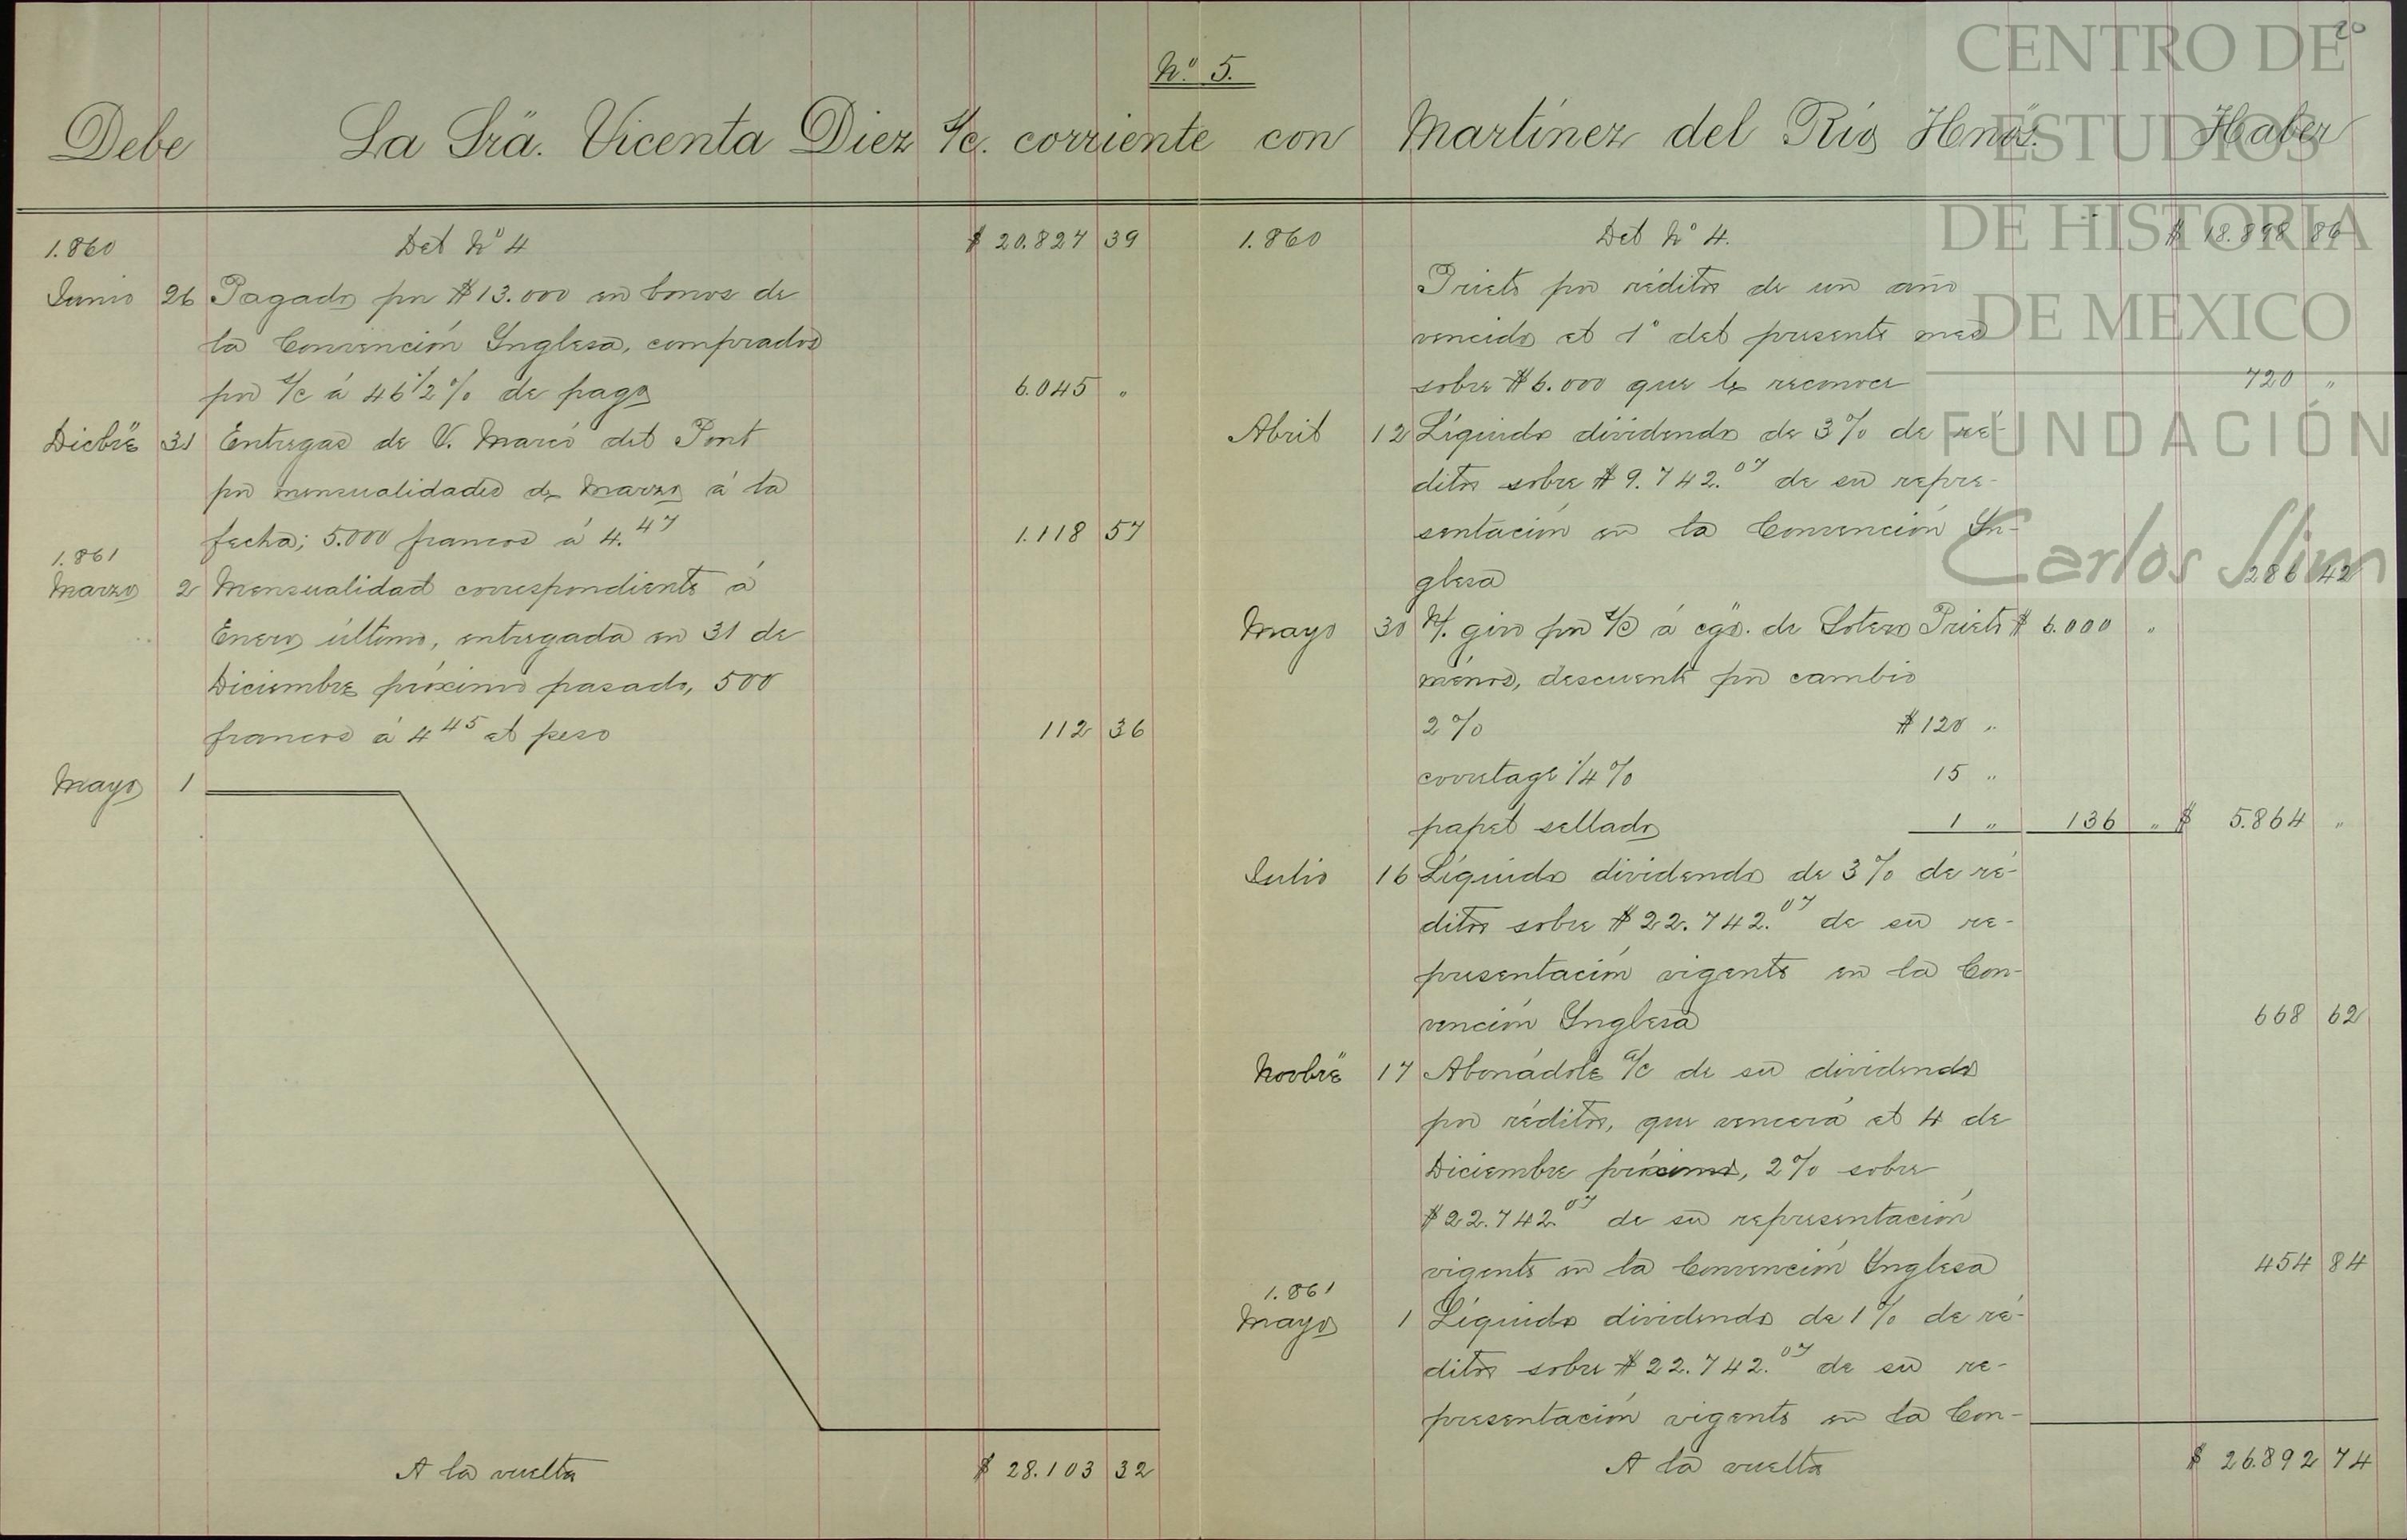 20
Nº 5.
Debe La Srä. Vicenta Diez s/c. corriente con Martínez del Río Hnös. Haber
1.860 Del Nº 4 $ 20.827 39
Junio 26 Pagado por $13.000 en bonos de
la Convención Ynglesa, comprados
por s/c á 46 1/2 % de pago 6.045 "
Dicbrë 31 Entregas de V. Marcó del Pont
por mensualidades de Marzo á la
fecha; 5.000 francos á 4.47 1.118 57
1.861
Marzo 2 Mensualidad correspondiente á
Enero último, entregada en 31 de
Diciembre próximo pasado, 500
francos á 4 45 el peso 112 36
Mayo 1
A la vuelta $ 28.103 32
1.860 Del Nº 4. $ 18.898 86
Prieto por réditos de un año
vencido el 1º del presente mes
sobre $6.000 que le reconoce 720 "
Abril 12 Líquido dividendo de 3% de ré-
ditos sobre $ 9.742.07 de su repre-
sentación en la Convención Yn-
glesa 286 42
Mayo 30 N/. giro por s/c á cgö. de Sotero Prieto $ 6.000 "
ménos, descuento por cambio
2% $ 120 "
corretage 1/4 % 15 "
papel sellado 1 " 136 " $ 5.864 "
Julio 16 Líquido dividendo de 3% de ré-
ditos sobre $ 22.742.07 de su re-
presentación vigente en la Con-
vención Ynglesa 668 62
Novbrë 17 Abonádole a/c de su dividendo
por réditos, que vencerá el 4 de
Diciembre próximo, 2% sobre
$ 22.742.07 de su representación
vigente en la Convención Ynglesa 454 84
1.861
Mayo 1 Líquido dividendo de 1% de ré-
ditos sobre $ 22.742.07 de su re-
presentación vigente en la Con-
A la vuelta $ 26.892 74
CENTRO DE
ESTUDIOS
DE HISTORIA
DE MEXICO
FUNDACIÓN
Carlos Slim